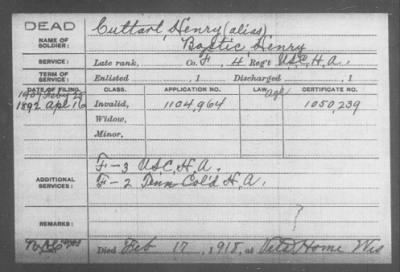 DEAD
NAME OF SOLDIER:
Cuttart, Henry (alias)
Baptic, Henry
SERVICE: Late rank, Co. F, 4 Reg't U.S.C.H.A.
TERM OF SERVICE: Enlisted , 1 Discharged , 1
DATE OF FILING. CLASS. APPLICATION NO. LAW. CERTIFICATE NO.
1907 Feby
1892 Apl 16 Invalid, 1104,964 1050,239
Widow,
Minor,
ADDITIONAL SERVICES:
F-3 U.S.C.H.A.
F-2 Tenn Col'd H.A.
REMARKS:
Died Feb 17, 1918, at Vets Home Wis